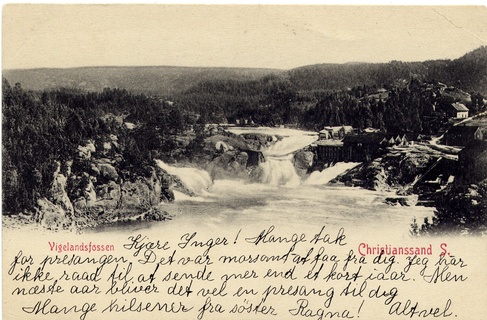 Vigelandsfossen
Christianssand S.
Kjære Inger! Mange tak
for presangen. Det var morsomt at faa fra dig. Jeg har
ikke raad til at sende mer end et kort iaar. Men
næste aar bliver det vel en presang til dig
Mange hilsener fra søster Ragna! Altvel.